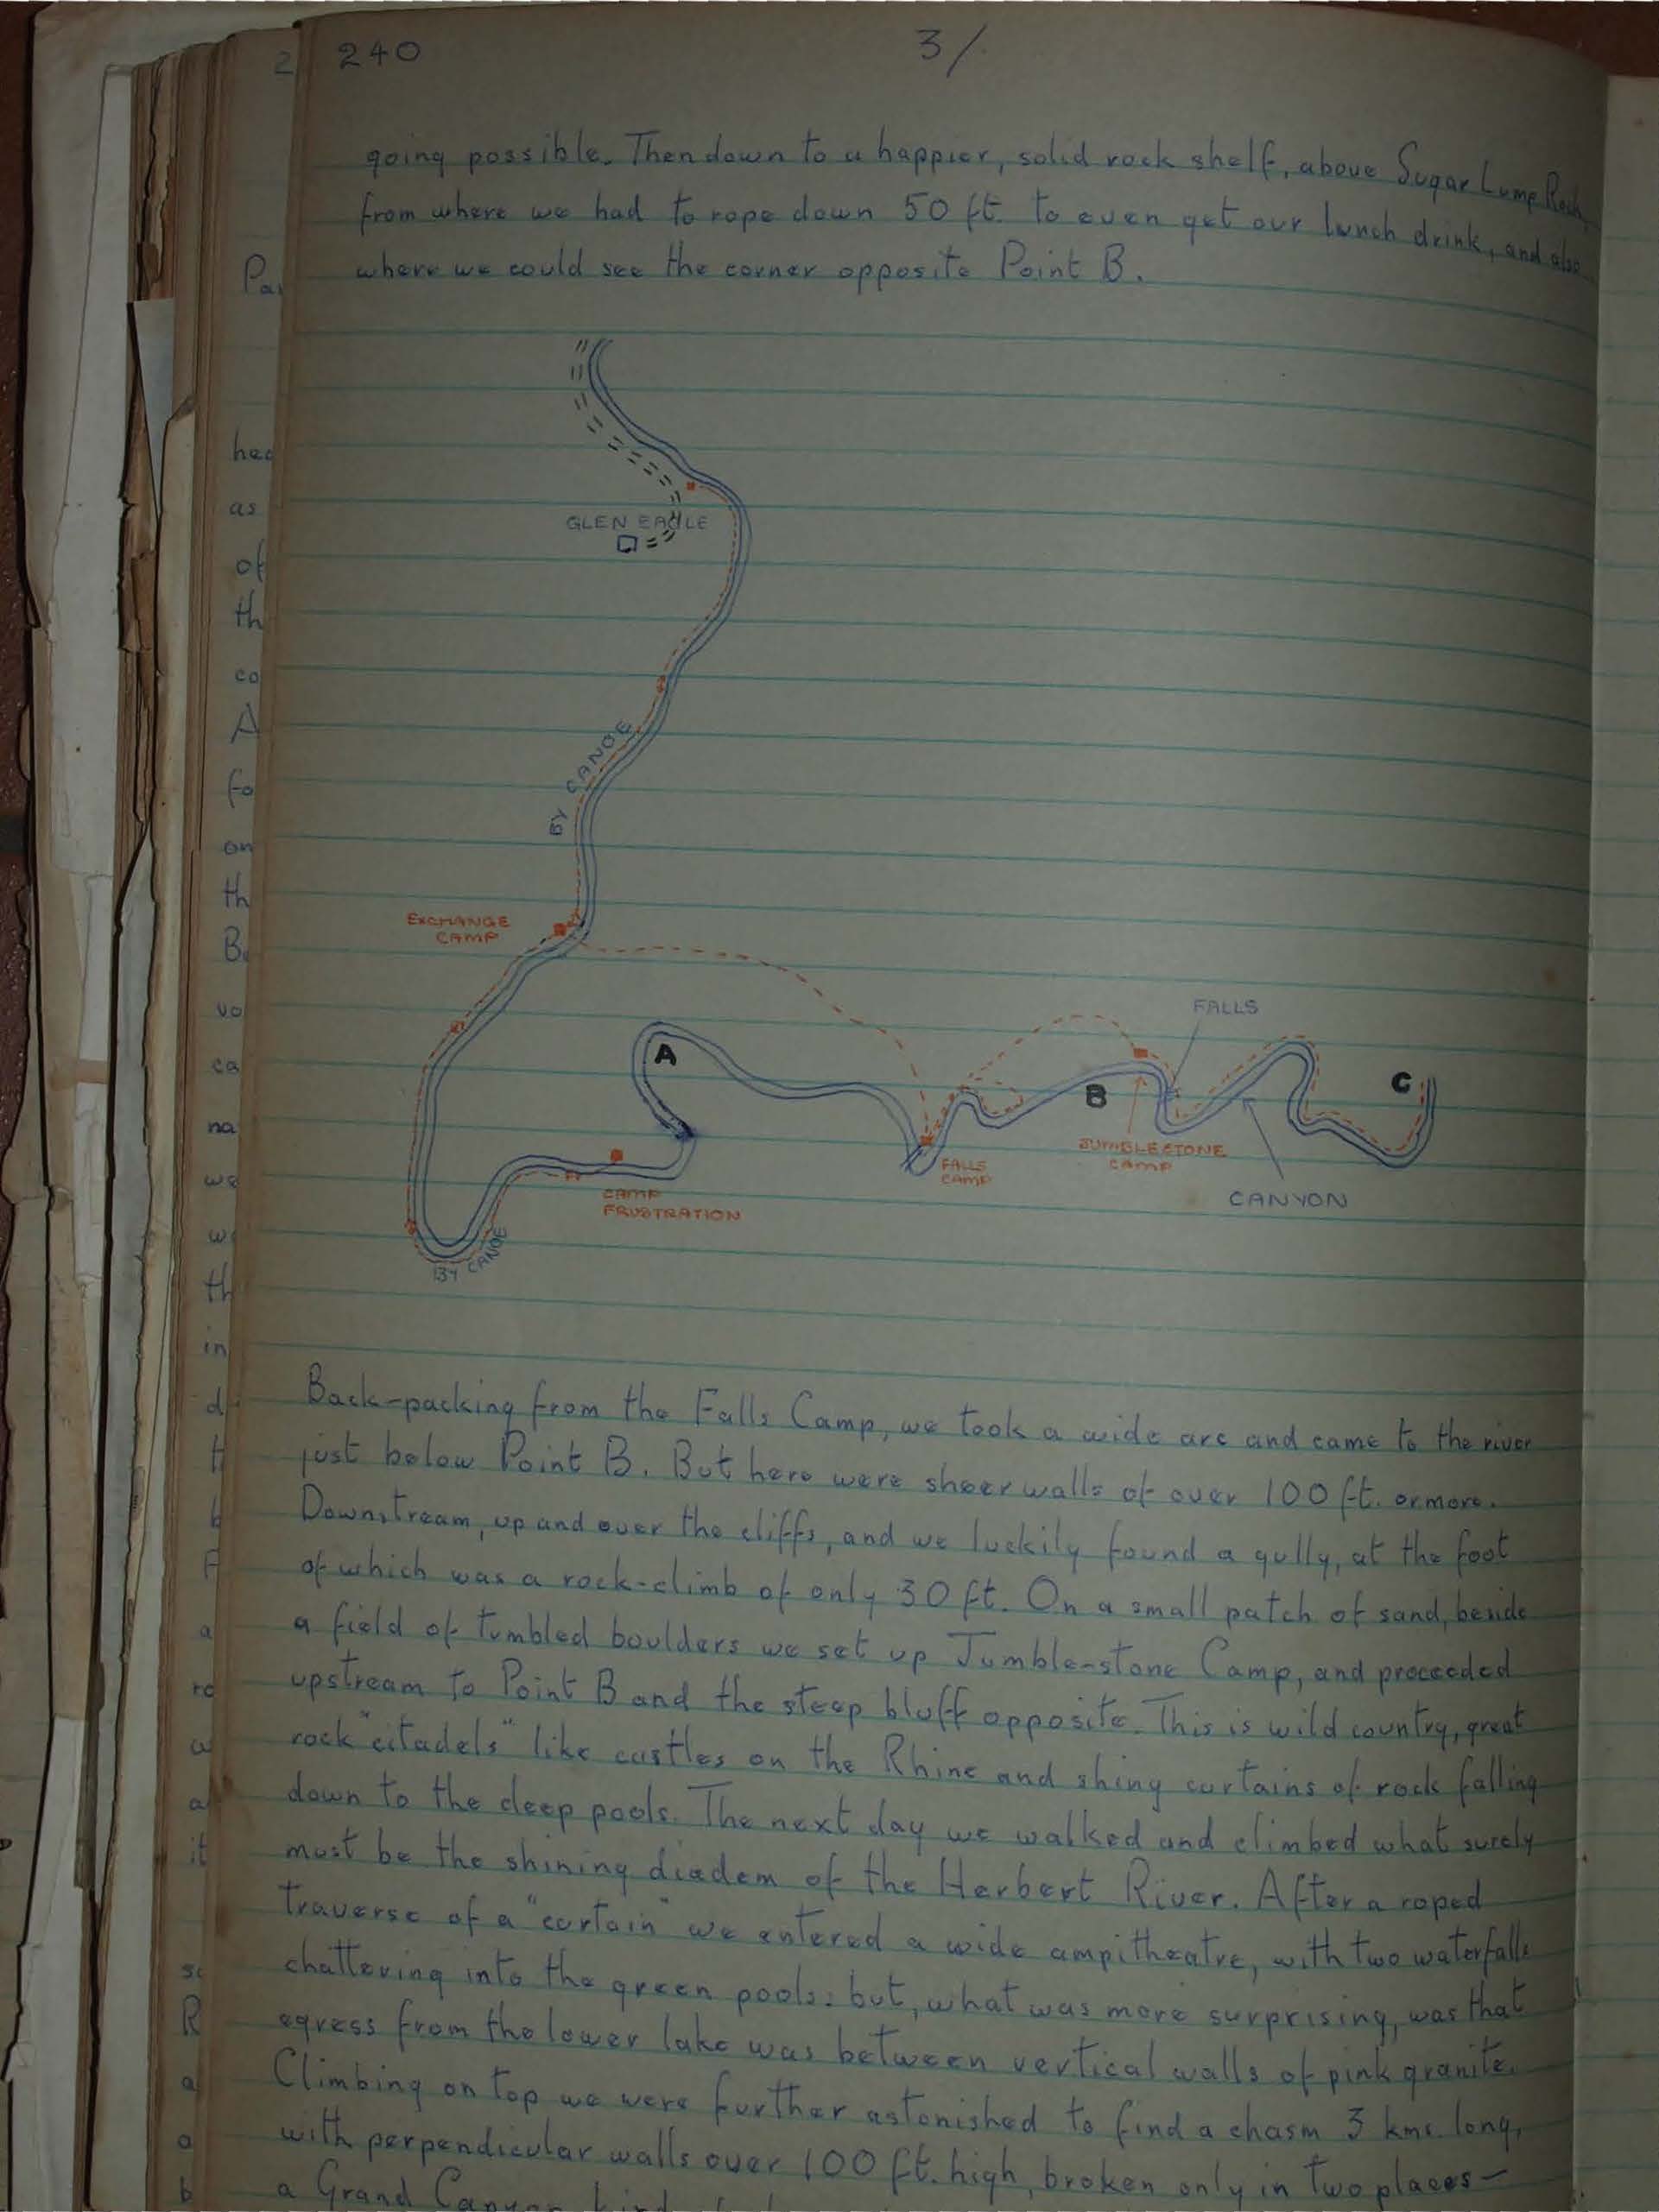 240
3/.
going possible. Then down to a happier, solid rock shelf, above Sugar Lump Rock,
from where we had to rope down 50 ft. to even get our lunch drink, and also
where we could see the corner opposite Point B.
GLEN EAGLE
BY CANOE
EXCHANGE
CAMP
FALLS
A
B
C
JUMBLESTONE
CAMP
FALLS
CAMP
CANYON
CAMP
FRUSTRATION
BY CANOE
Back-packing from the Falls Camp, we took a wide arc and came to the river
just below Point B. But here were sheer walls of over 100 ft. or more.
Downstream, up and over the cliffs, and we luckily found a gully, at the foot
of which was a rock-climb of only 30 ft. On a small patch of sand, beside
a field of tumbled boulders we set up Jumble-stone Camp, and proceeded
upstream to Point B and the steep bluff opposite. This is wild country, great
rock "citadels" like castles on the Rhine and shing curtains of rock falling
down to the deep pools. The next day we walked and climbed what surely
must be the shining diadem of the Herbert River. After a roped
traverse of a "curtain" we entered a wide ampitheatre, with two waterfalls
chattering into the green pools: but, what was more surprising, was that
egress from the lower lake was between vertical walls of pink granite.
Climbing on top we were further astonished to find a chasm 3 kms. long,
with perpendicular walls over 100 ft. high, broken only in two places —
a Grand Canyon